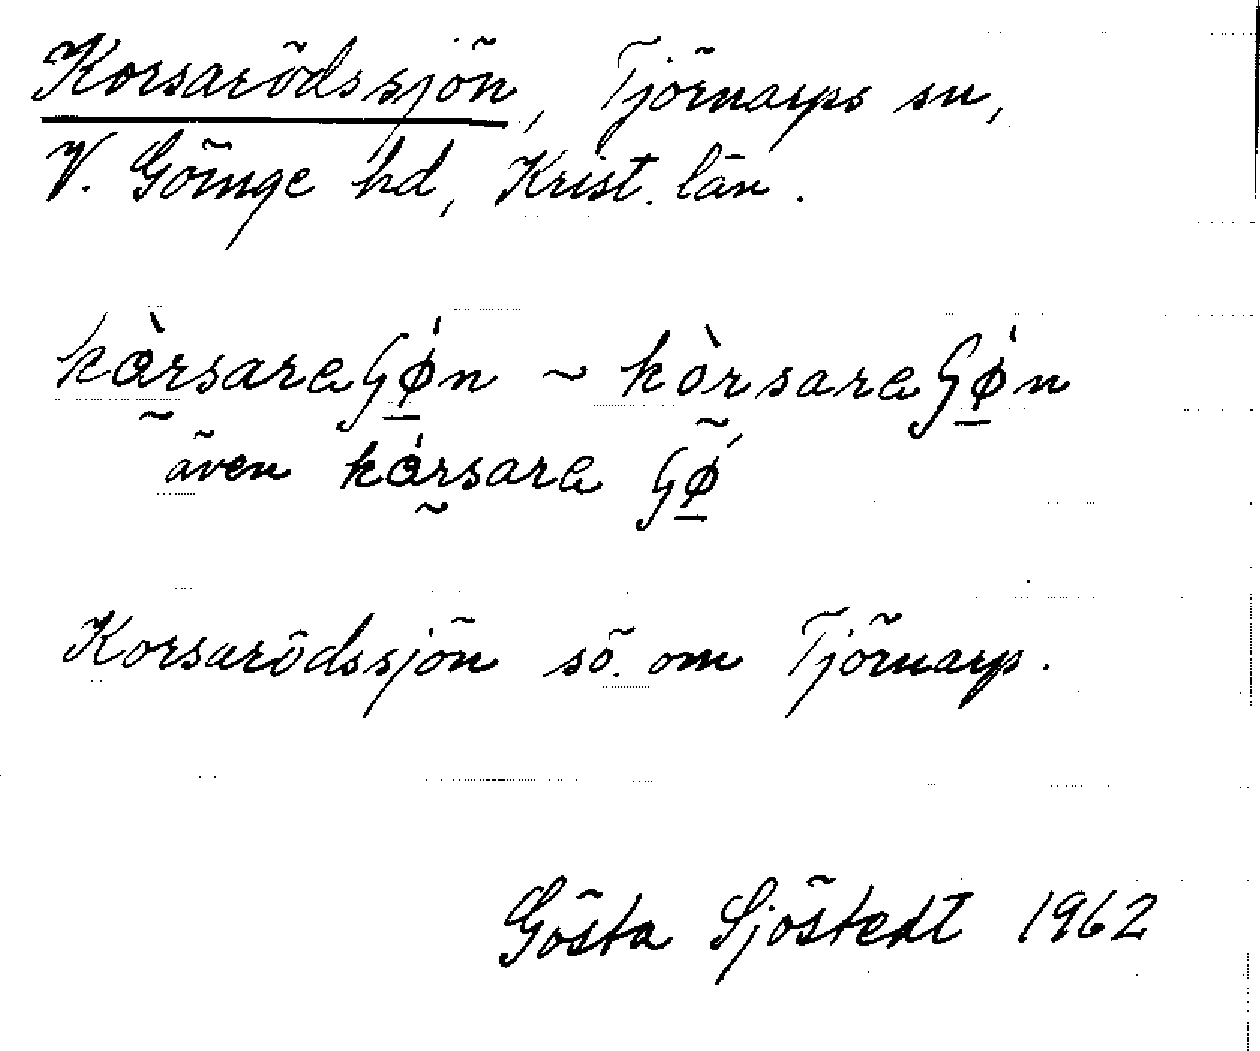 Korsarödssjön, Tjörnarps sn,
V. Göinge hd, Krist. län.
kɑ̀rsaraɧǿ̱n ~ kòrsaraɧǿ̱n
även kɑ́rsara ɧǿ̱
Korsarödssjön sö. om Tjörnarp.
Gösta Sjöstedt 1962